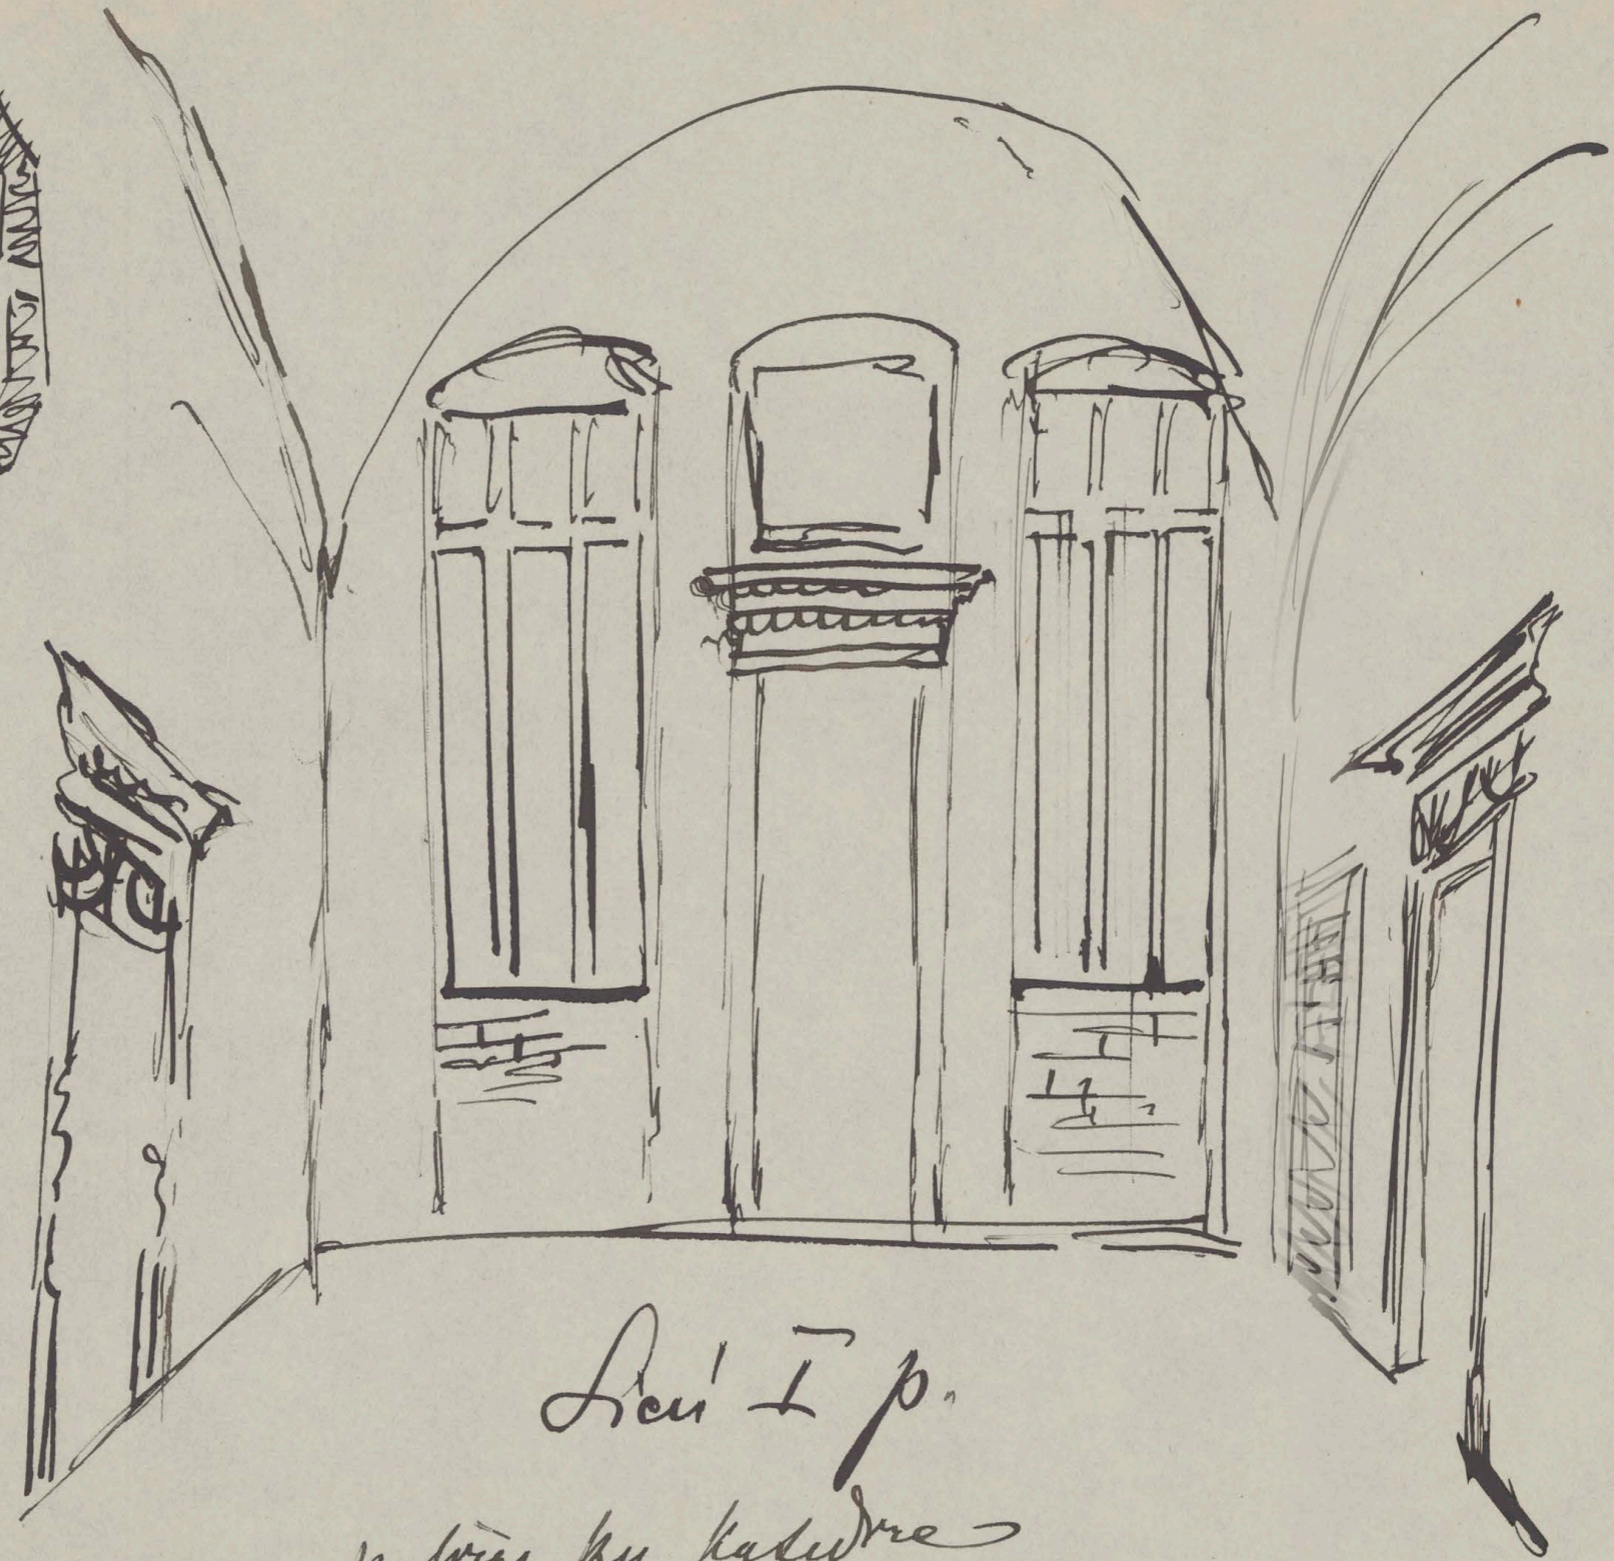 Sień I p.
ku Katedrze